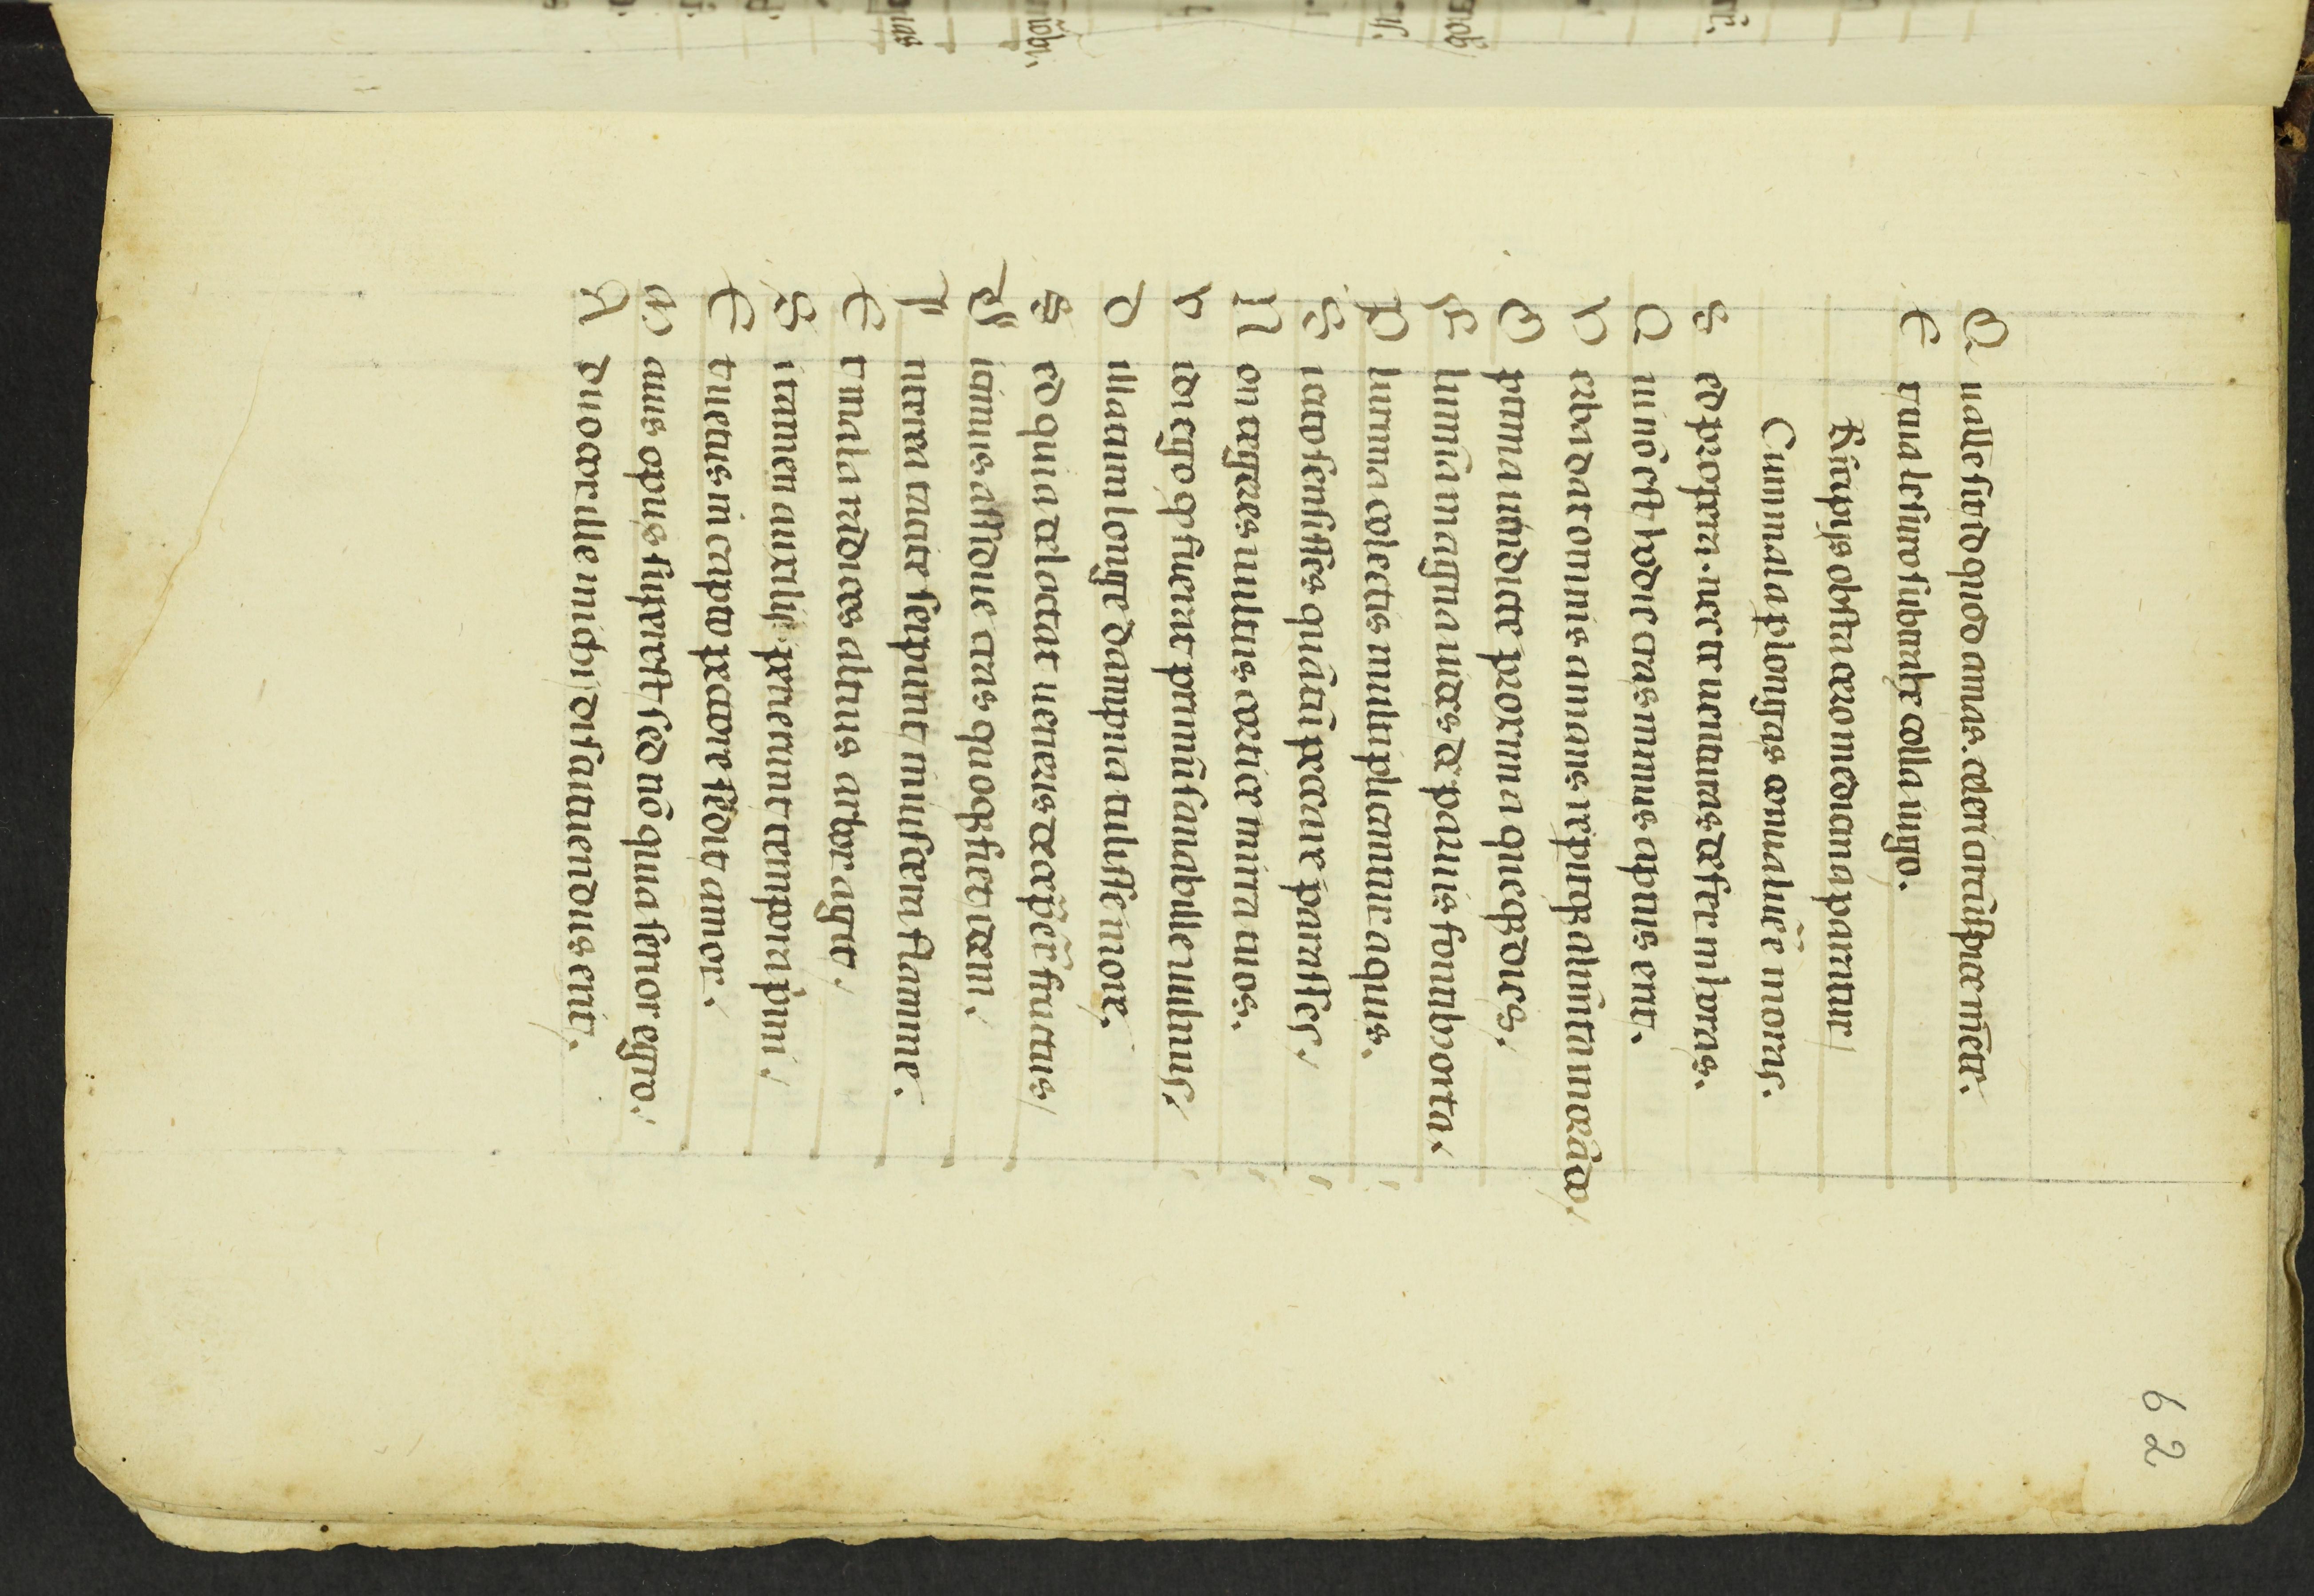 Q ualesit id quod amas. celeri circūspice mēte.
E t tua lesuro subtrahe colla iugo.
P̃ncipijs obsta cero medicina paratur
Cum mala p longas conualuēe moras.
S ed propera. nec te uenturas defer in horas.
Q ui nō est hodie cras minus aptus erit.
V erba dat omnis amans repitqȝ alimēta morādo.
O ptima uindicte proxima quequȝ dies.
F lumina magna uides de paruis fontib orta.
P lurima colectis multiplicantur aquis.
S i cito sensisses quātū peccare parasses.
N on tegeres uultus cortice mirra tuos.
V idi ego qȝ fuerat primū sanabile uulnus
D illatum longe dampna tulisse more.
S ed quia delectat ueneris decerpēe fructus
D icimus assidue cras quoqȝ fiet idem.
I nterea tacite serpunt in uiscera flamme.
E t mala radices altius arbor agit.
S i tamen auxilij perierunt tempora primi.
E t uetus in capto pectore sedit amor.
M aius opus superest sed nō quia senior egro.
A duocor ille michi distituendus erit.
62